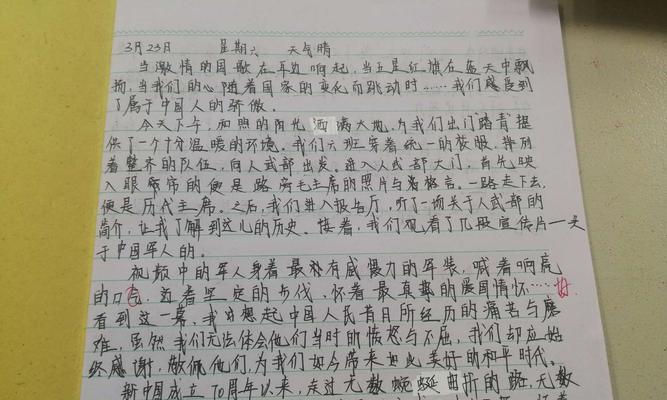 3月23日 星期六 天气晴
当激情的国歌在耳边响起,当五星红旗在蓝天中飘
扬,当我们的心随着国家的变化而跳动时……我们感受到
了属于中国人的骄傲。
今天下午,和煦的阳光洒满大地,为我们出门踏青提
供了一个十分温暖的环境。我们六班穿着统一的校服,排列
着整齐的队伍,向人武部出发。进入人武部大门,首先映
入眼帘的便是路旁毛主席的照片与名格言。一路走下去,
便是历代主席。之后,我们进入报告厅,听了一场关于人武部的
简介,让我了解到这儿的历史。接着,我们观看了几段宣传片——关
于中国军人的。
视频中的军人身着最有威慑力的军装,喊着响亮
的口号,迈着坚定的步伐,怀着最真挚的爱国情怀……
看到这一幕,我想起中国人民昔日所经历的痛苦与磨
难,虽然我们无法体会他们当时的愤怒与不屈,我们却应始
终感谢,敬佩他们,为我们如今带来如此美好的和平时代。
新中国成立70周年以来,走过无数蜿蜒曲折的路,无数